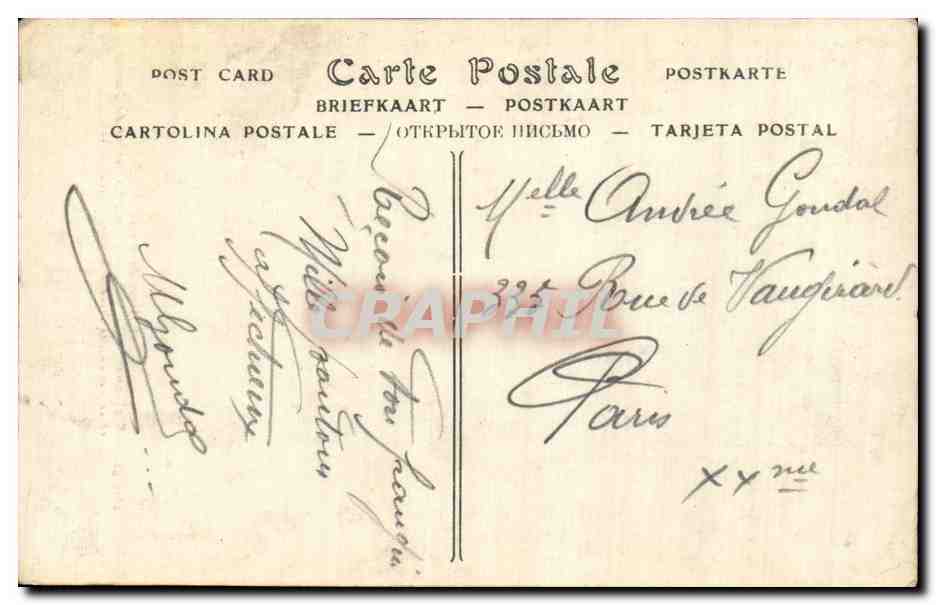 POST CARD Carte Postale POSTKARTE
BRIEFKAART — POSTKAART
CARTOLINA POSTALE — ОТКРЫТОЕ ПИСЬМО — TARJETA POSTAL
Reçois de ton
Mille
affectueux
MGoudal
Melle Andrée Goudal
335 Rue de Vaugirard
Paris
XXme
CRAPHIL